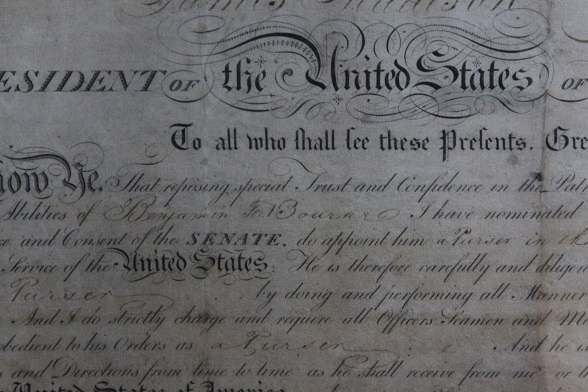 James Madison
ESIDENT OF the United States OF
To all who shall see these Presents, Gre
now Ye, That reposing special Trust and Confidence in the Pat
Abilities of Benjamin F. Bourne I have nominated
ce and Consent of the SENATE, do appoint him a Purser in th
Service of the United States: He is therefore carefully and dilige
Purser by doing and performing all Manne
And I do strictly charge and require all Officers Seamen and M
bedient to his Orders as a Purser And he is
s and Directions from time to time as he shall receive from me or
United States of America